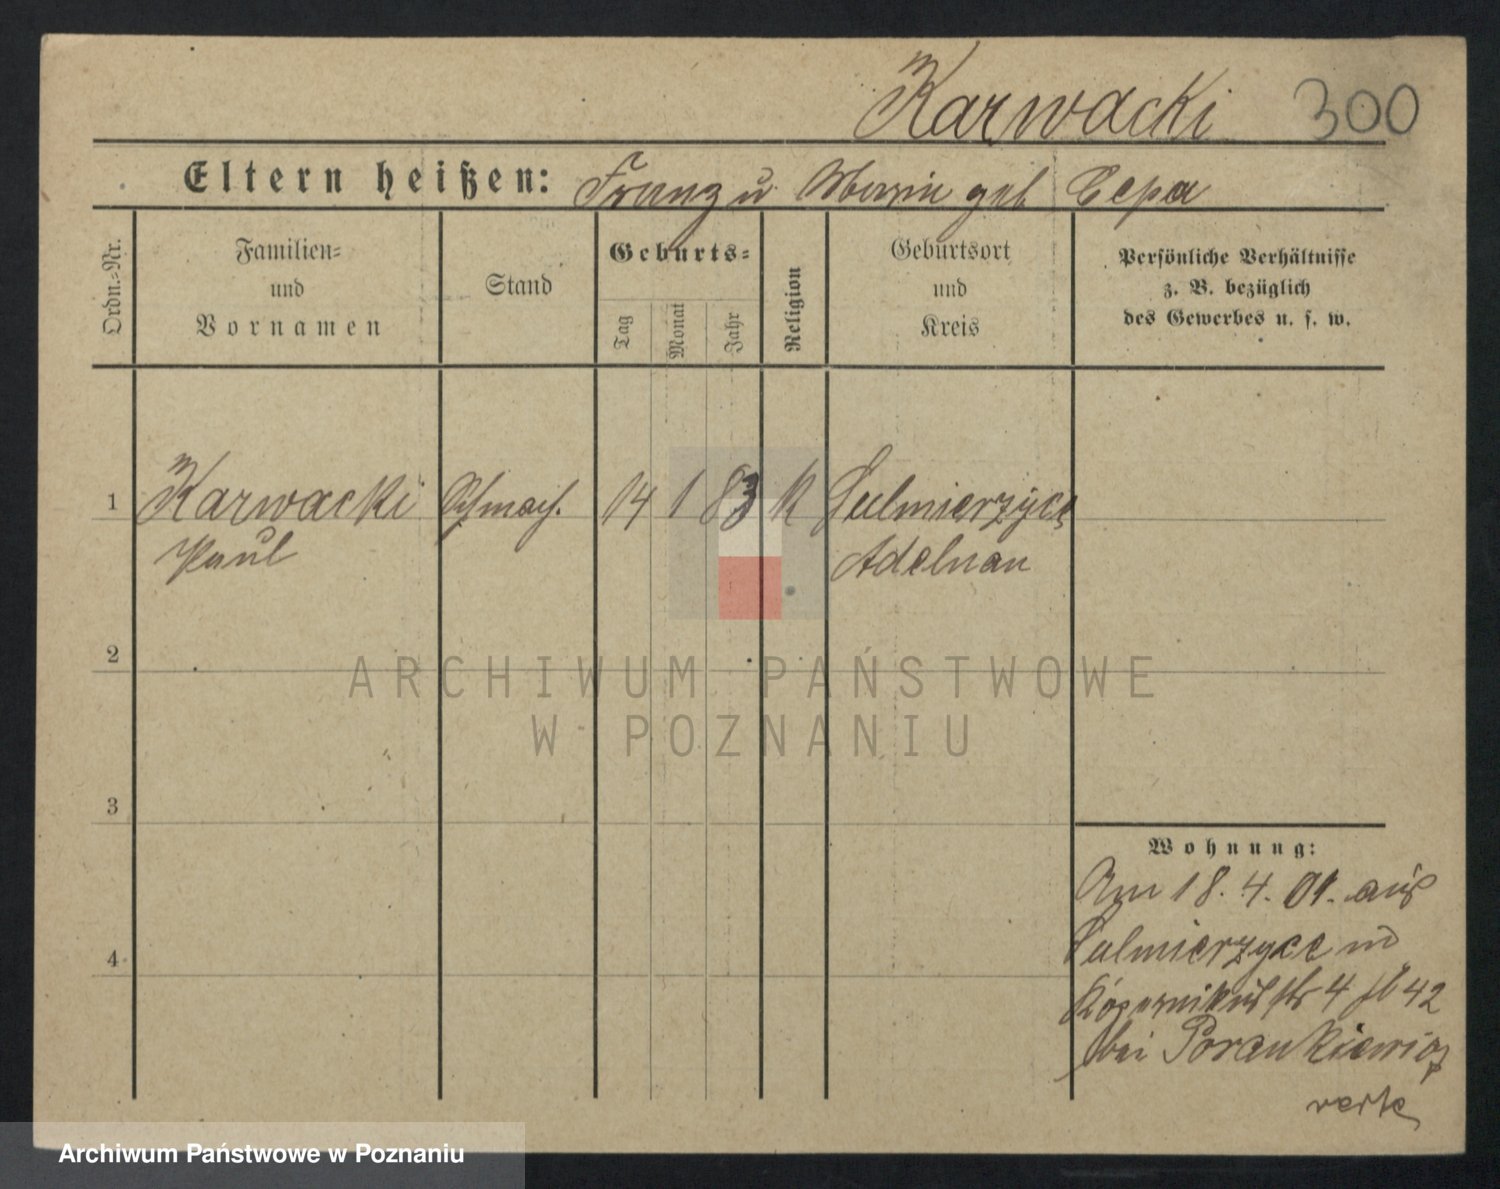 Karwacki 300
Eltern heißen: Franz u Marie geb Cepa
Ordn.=Nr.
Familien=
und
Vornamen
Stand
Geburts=
Tag
Monat
Jahr
Religion
Geburtsort
und
Kreis
Persönliche Verhältnisse
z. B. bezüglich
des Gewerbes u. s. w.
1 Karwacki Schmach. 14 1 83 K Sulmierzyce
Paul Adelnau
2
ARCHIWUM PAŃSTWOWE
W POZNANIU
3
Wohnung:
Am 18. 4. 01. aus
Sulmierzyce
4
Kopernikusstr 4 42
bei Porankiewicz
Archiwum Państwowe w Poznaniu